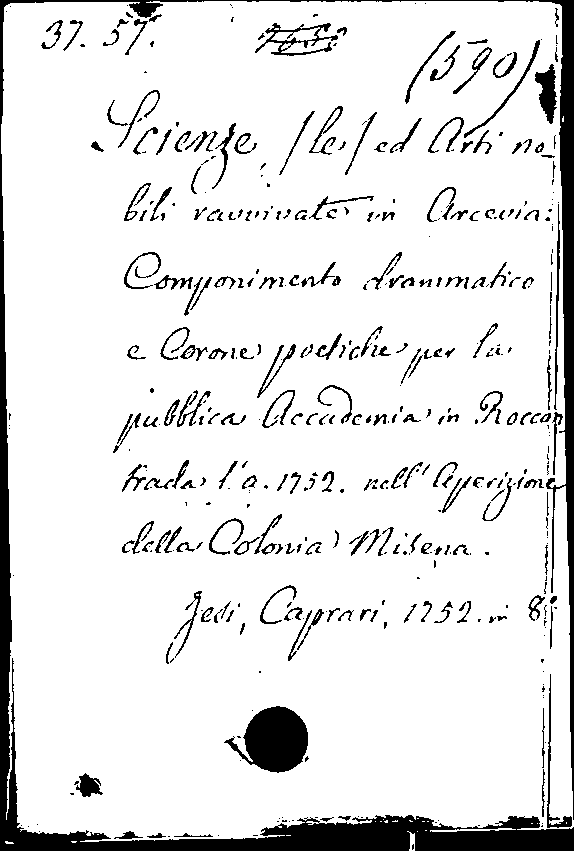 37. 57.
(590)
Scienze /le/ ed Arti no-
bili ravvivate in Arcevia:
Componimento drammatico
e Corone poetiche per la
pubblica Accademia in Roccon
trada l'a. 1752. nell' Aperizione
della Colonia Misena.
Jesi, Caprari, 1752. in 8º